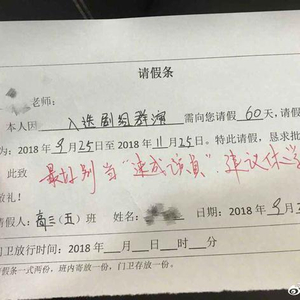 请假条
老师:
本人因 入选剧组群演 需向您请假 60 天,
为: 2018 年 9 月 25 日至 2018 年 11 月 25 日。特此请假,恳求批
此致
最好别当“速成演员”建议休学
敬礼!
请假人: 高三(五)班 姓名: 日期: 2018 年 9 月
门卫放行时间: 2018 年 月 日 时 分
假条一式两份,班内寄放一份,门卫存放一份。